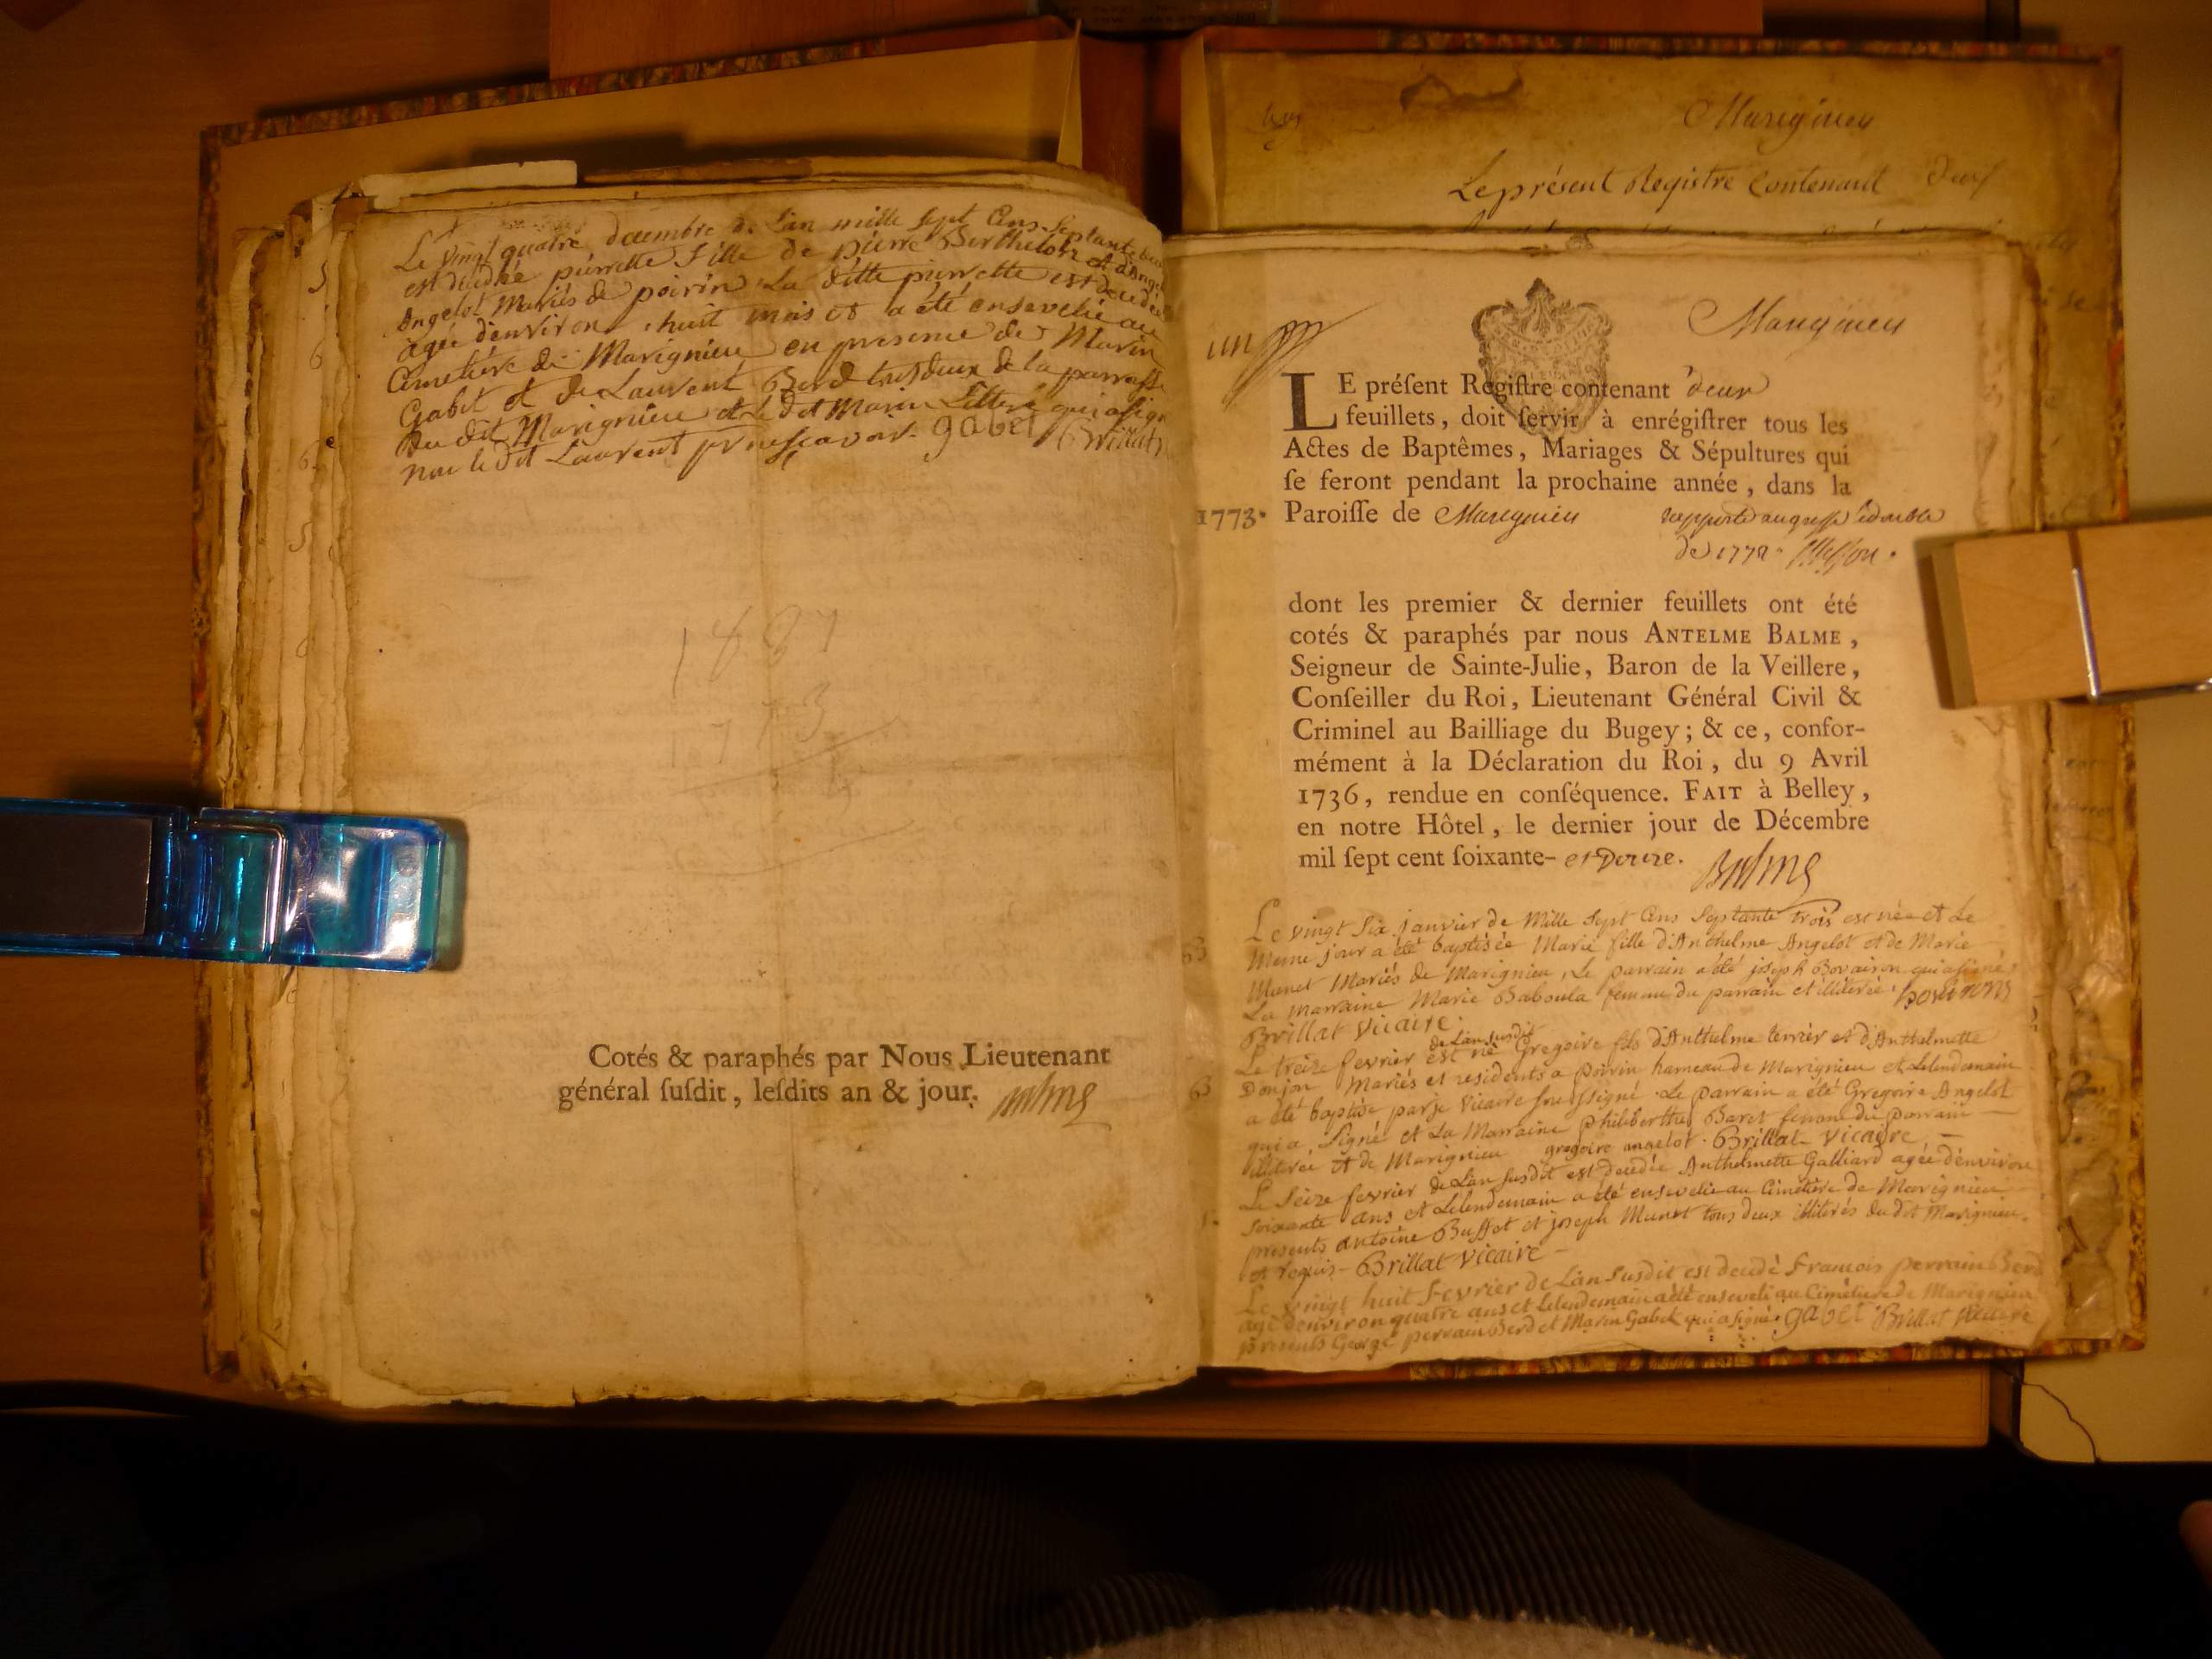 Le vingt quatre decembre de L'an mille Sept Cens Septante deux
est decedée pierrette fille de pierre Berthelon et d'Ange
Angelot Mariés de poirin La ditte pierrette est decedée
agée d'environ huit mois et a été ensevelie au
Cimetière de Marignieu en presence de Marin
Gabet et de Laurent Berd tous deux de la parroisse
du dit Marignieu et Le dit Marin Litteré qui a signé
non le dit Laurent pr ne sçavoir. gabet Brillat
1773
Cotés & paraphés par Nous Lieutenant
général ſuſdit, leſdits an & jour. Balme
Marignieu
Le présent Registre Contenant deux
un
Marignieu
LE préſent Regiſtre contenant deux
feuillets, doit ſervir à enrégiſtrer tous les
Actes de Baptêmes, Mariages & Sépultures qui
ſe feront pendant la prochaine année, dans la
1773. Paroiſſe de Marignieu rapporté au greffe le double
de 1772.
dont les premier & dernier feuillets ont été
cotés & paraphés par nous ANTELME BALME,
Seigneur de Sainte-Julie, Baron de la Veillere,
Conſeiller du Roi, Lieutenant Général Civil &
Criminel au Bailliage du Bugey; & ce, confor-
mément à la Déclaration du Roi, du 9 Avril
1736, rendue en conſéquence. FAIT à Belley,
en notre Hôtel, le dernier jour de Décembre
mil ſept cent ſoixante- et Douze. Balme
Le vingt Six janvier de Mille Sept Cens Septante trois est née et Le
Meme jour a été baptisée Marie fille d'Anthelme Angelot et de Marie
Munet Mariés de Marignieu, Le parrain a été joseph Bovairon qui a signé
La marraine Marie Baboula femme du parrain et illiterée. bovairon
Brillat Vicaire.
Le treize fevrier de L'an susdit est né Gregoire fils d'Anthelme terrier et d'Anthelmette
Donjon Mariés et residents a poirin hameau de Marignieu et Lelendemain
a été baptisé par je vicaire soussigné. Le parrain a été Gregoire Angelot
qui a Signé et La Marraine philiberthe Baret femme du parrain
illiterée et de Marignieu gregoire angelot. Brillat Vicaire
Le Seize fevrier de L'an susdit est decedée Anthelmette Galliard agée d'environ
soixante ans et Lelendemain a été ensevelie au Cimetière de Marignieu
presents antoine Buffet et joseph Munet tous deux illiterés du dit Marignieu.
et requis - Brillat Vicaire
Le vingt huit Fevrier de L'an Susdit est decedé Francois perrain Berd
agé d'environ quatre ans et Lelendemain a été enseveli au Cimetière de Marignieu
presents George perrain Berd et Marin Gabet qui a signé. gabet Brillat Vicaire